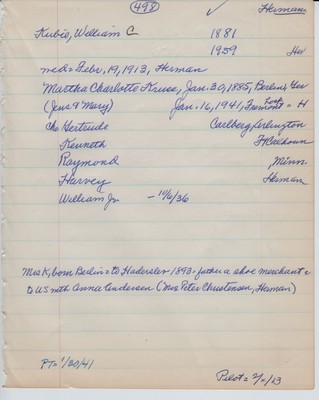 498 ✓ Herman
Kubie, William C 1881
1959 Her
med = Febr. 19, 1913, Herman
Martha Charlotte Kruse, Jan. 30, 1885, Berlin, Ger
(Jens & Mary) Jan. 16, 1941, Fremont = H
Ch = Gertrude Carlberg, Arlington
Kenneth
Raymond Minn.
Harvey Herman
William Jr - 10/6/36
Mrs K, born Berlin = to Hadersler 1893 = father a shoe merchant =
to US with Anna Andersen (Mrs Peter Christensen, Herman)
PT = 1/30/41
Pilot = 2/